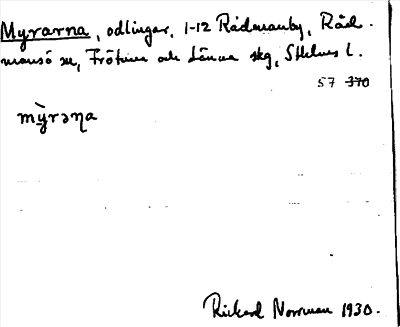 Myrarna, odlingar, 1-12 Rådmanby, Råd-
mansö sn, Frötuna och Länna skg, Sthlms l.
57 370
mỳrəɳa
Rickard Norrman 1930.